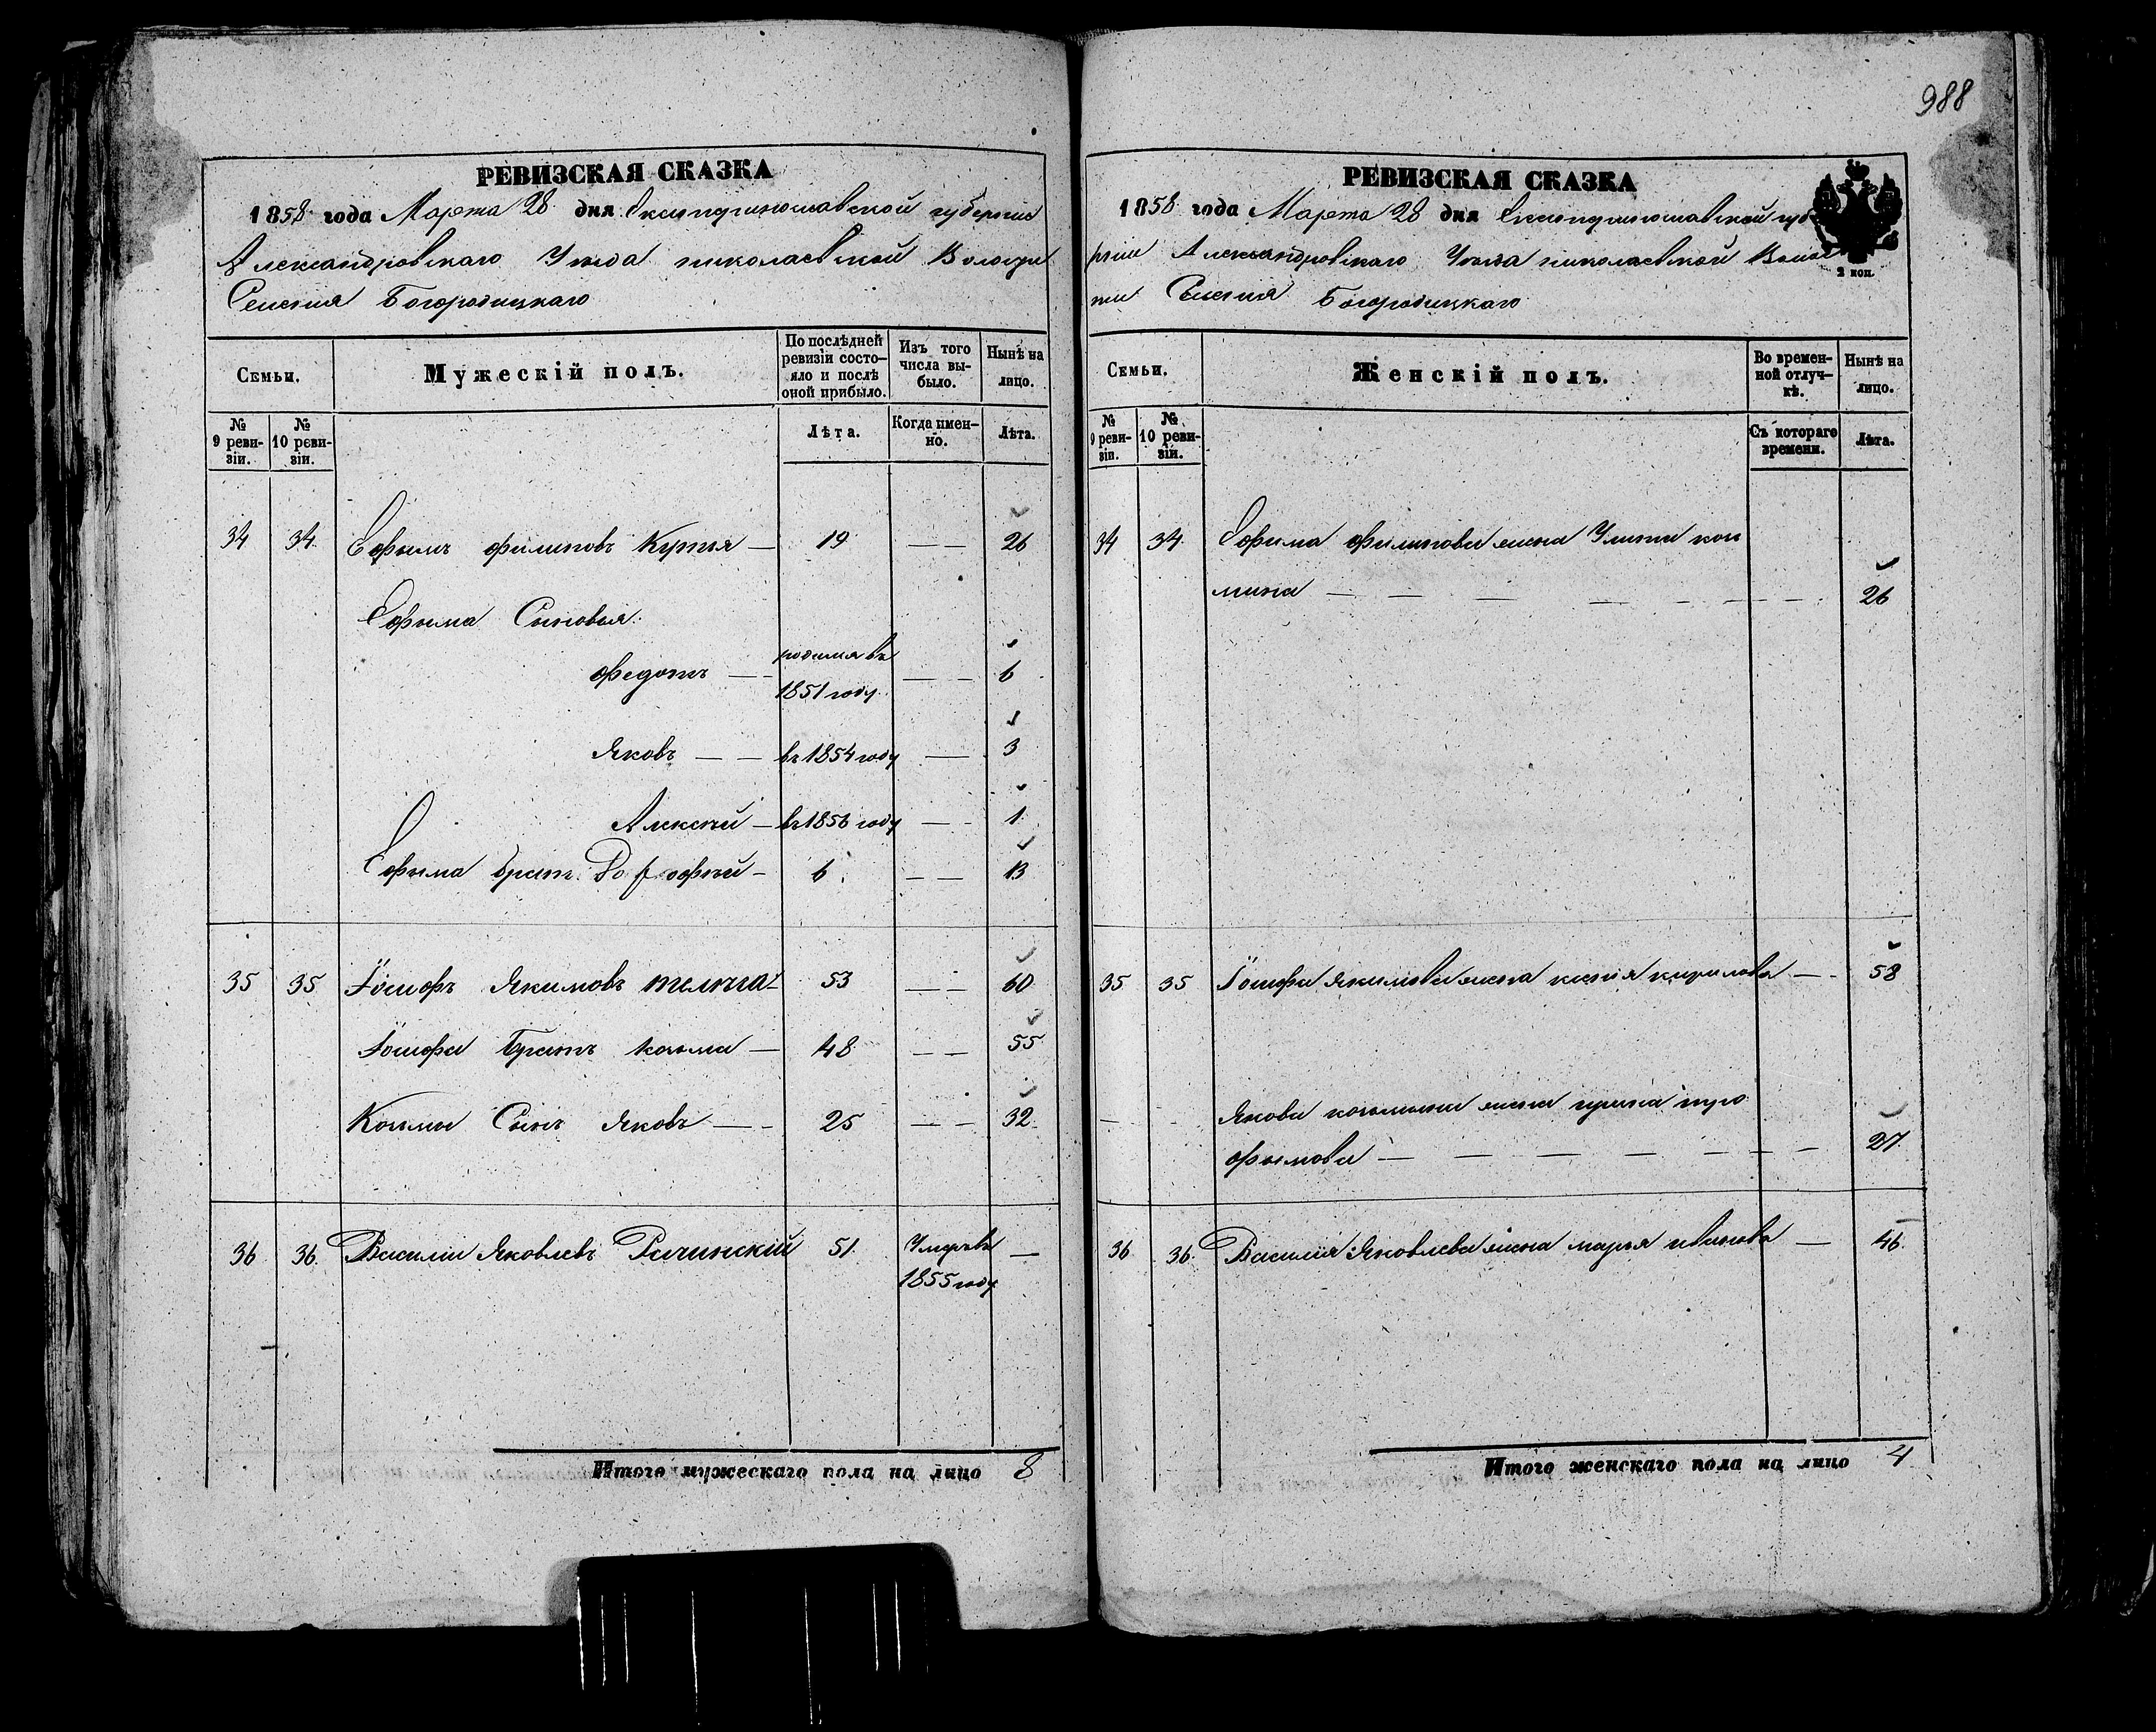 988
РЕВИЗСКАЯ СКАЗКА
1858 года Марта 28 дня Екатеринославской губернии
Александровскаго Уѣзда николаевской Волости
Селения Богородицкаго
Семьи.
Мужескій полъ.
По послѣдней ревизіи состояло и послѣ оной прибыло.
Изъ того числа выбыло.
Нынѣ на лицо.
№ 9 ревизіи.
№ 10 ревизіи.
Лѣта.
Когда именно.
Лѣта.
34 34 Ефимъ филиповъ Кутя — 19 — — 26
Ефима Сыновья:
Федотъ — — родился въ 1851 году — — 6
Яковъ — — въ 1854 году — 3
Алексѣй — въ 1856 году — 1
Ефима братъ — 6 — — 13
35 35 Іосифъ Якимовъ 53 — — 60
Іосифа братъ козьма — 48 — — 55
Козьмы Сынъ Яковъ — — 25 — — 32
36 36 Василій Яковлевъ 51 Умеръ въ 1855 году —
Итого мужескаго пола на лицо 8
РЕВИЗСКАЯ СКАЗКА
1858 года Марта 28 дня Екатеринославской губе
рніи Александровскаго Уѣзда николаевской Волос
ти Селения Богородицкаго
2 коп.
Семьи.
Женскій полъ.
Во временной отлучкѣ.
Нынѣ на лицо.
№ 9 ревизіи.
№ 10 ревизіи.
Съ котораго времени.
Лѣта.
34 34 Ефима филипова жена Улита
мина — — — — — — — 26
35 35 Іосифа Якимова жена ксенія кирилова — — 58
Якова козьмина жена ирина тро
фимова — — — — — — — 27
36 36 Василія Яковлева жена марья иванова — 46
Итого женскаго пола на лицо 4